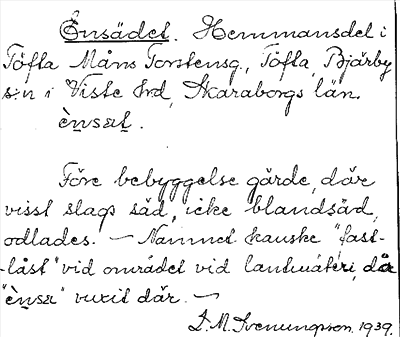 Ensädet. Hemmansdel i
Töfta Måns Torstensg., Töfta, Bjärby
s:n i Viste hrd, Skaraborgs län.
ènsɛt.
Före bebyggelse gärde, där
visst slags säd, icke blandsäd,
odlades. — Namnet kanske "fast-
-låst" vid området vid lantmäteri, där
"ènsɛ" vuxit där. —
D. M. Svenungsson. 1939.